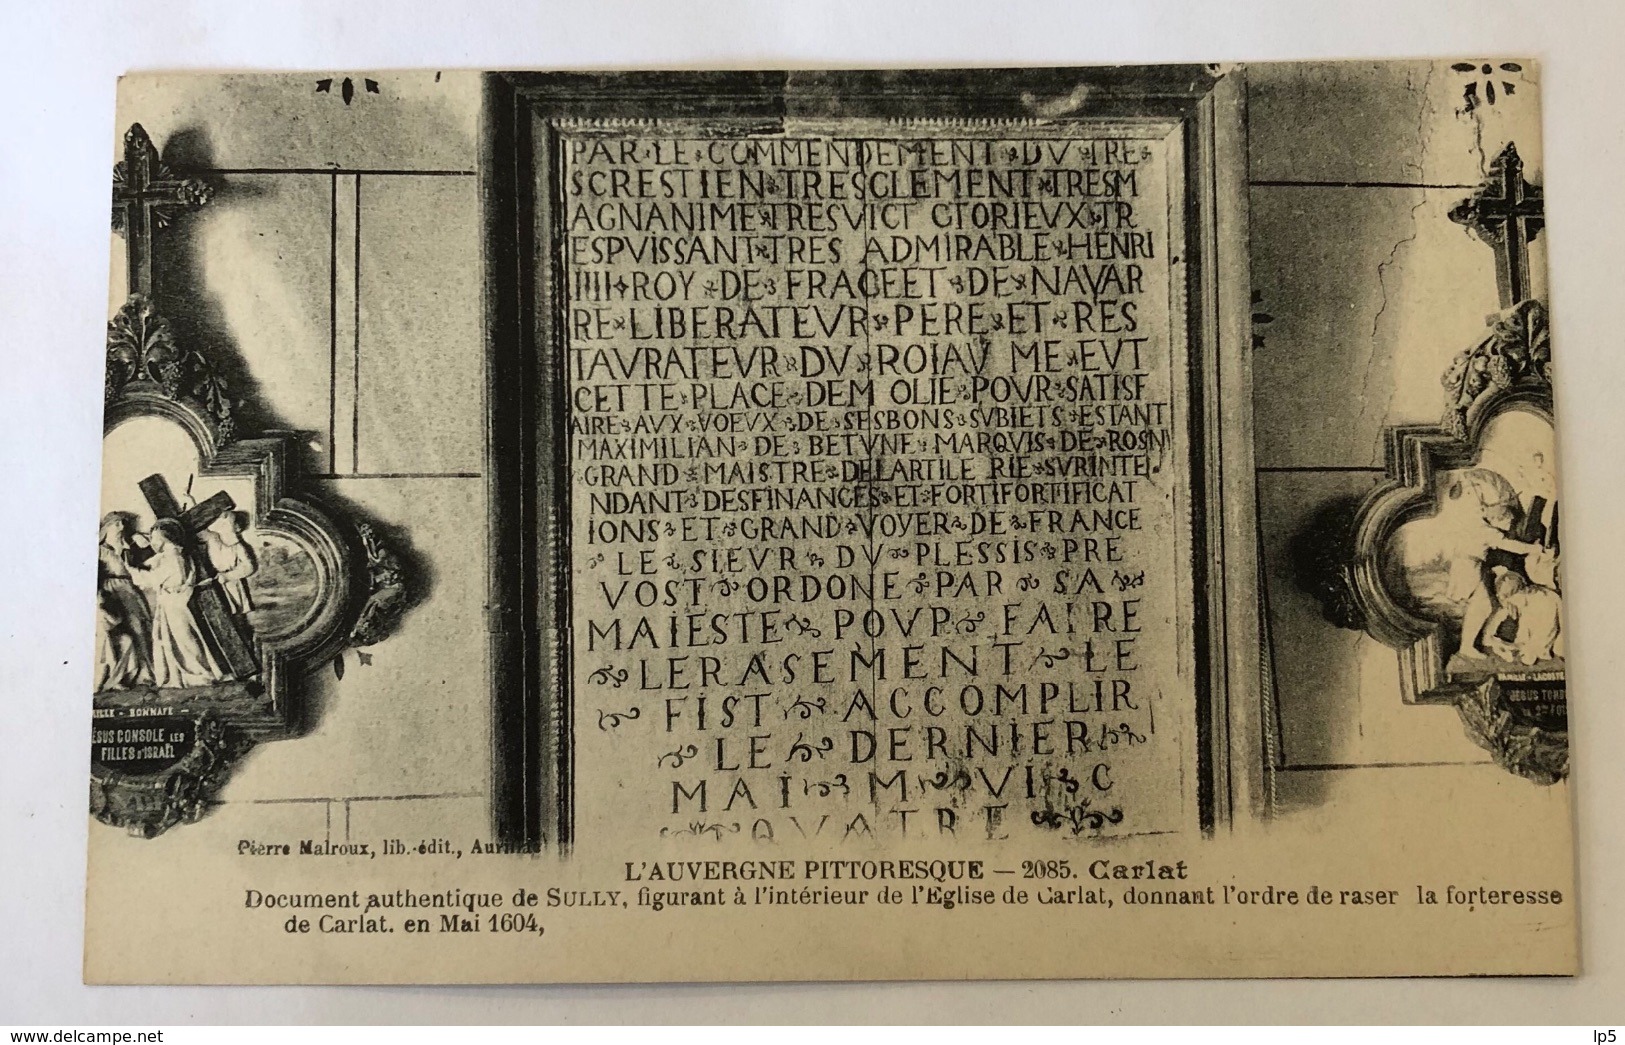 PAR LE COMMENDEMENT DV TRE
SCRESTIEN TRESCLEMENT TRESM
AGNANIME TRESVICT CTORIEVX TR
ESPVISSANT TRES ADMIRABLE HENRI
IIII ROY DE FRACEET DE NAVAR
RE LIBERATEVR PERE ET RES
TAVRATEVR DV ROIAV ME EVT
CETTE PLACE DEM OLIE POVR SATISF
AIRE AVX VOEVX DE SESBONS SVBIETS ESTANT
MAXIMILIAN DE BETVNE MARQVIS DE ROSNI
GRAND MAISTRE DELARTILE RIE SVRINTEI
NDANT DESFINANCES ET FORTIFORTIFICAT
IONS ET GRAND VOYER DE FRANCE
LE SIEVR DV PLESSIS PRE
VOST ORDONE PAR SA
MAIESTE POVR FAIRE
LERASEMENT LE
FIST ACCOMPLIR
LE DERNIER
MAI M VI C
QVATRE
FAMILLE - BONNAFE -
JÉSUS CONSOLE LES
FILLES D'ISRAËL
FAMILLE - LACOSTE
JÉSUS TOMBE
Pierre Malroux, lib.-édit., Aurillac
L'AUVERGNE PITTORESQUE — 2085. Carlat
Document authentique de SULLY, figurant à l'intérieur de l'Eglise de Carlat, donnant l'ordre de raser la forteresse
de Carlat. en Mai 1604,
delcampe.net
lp5